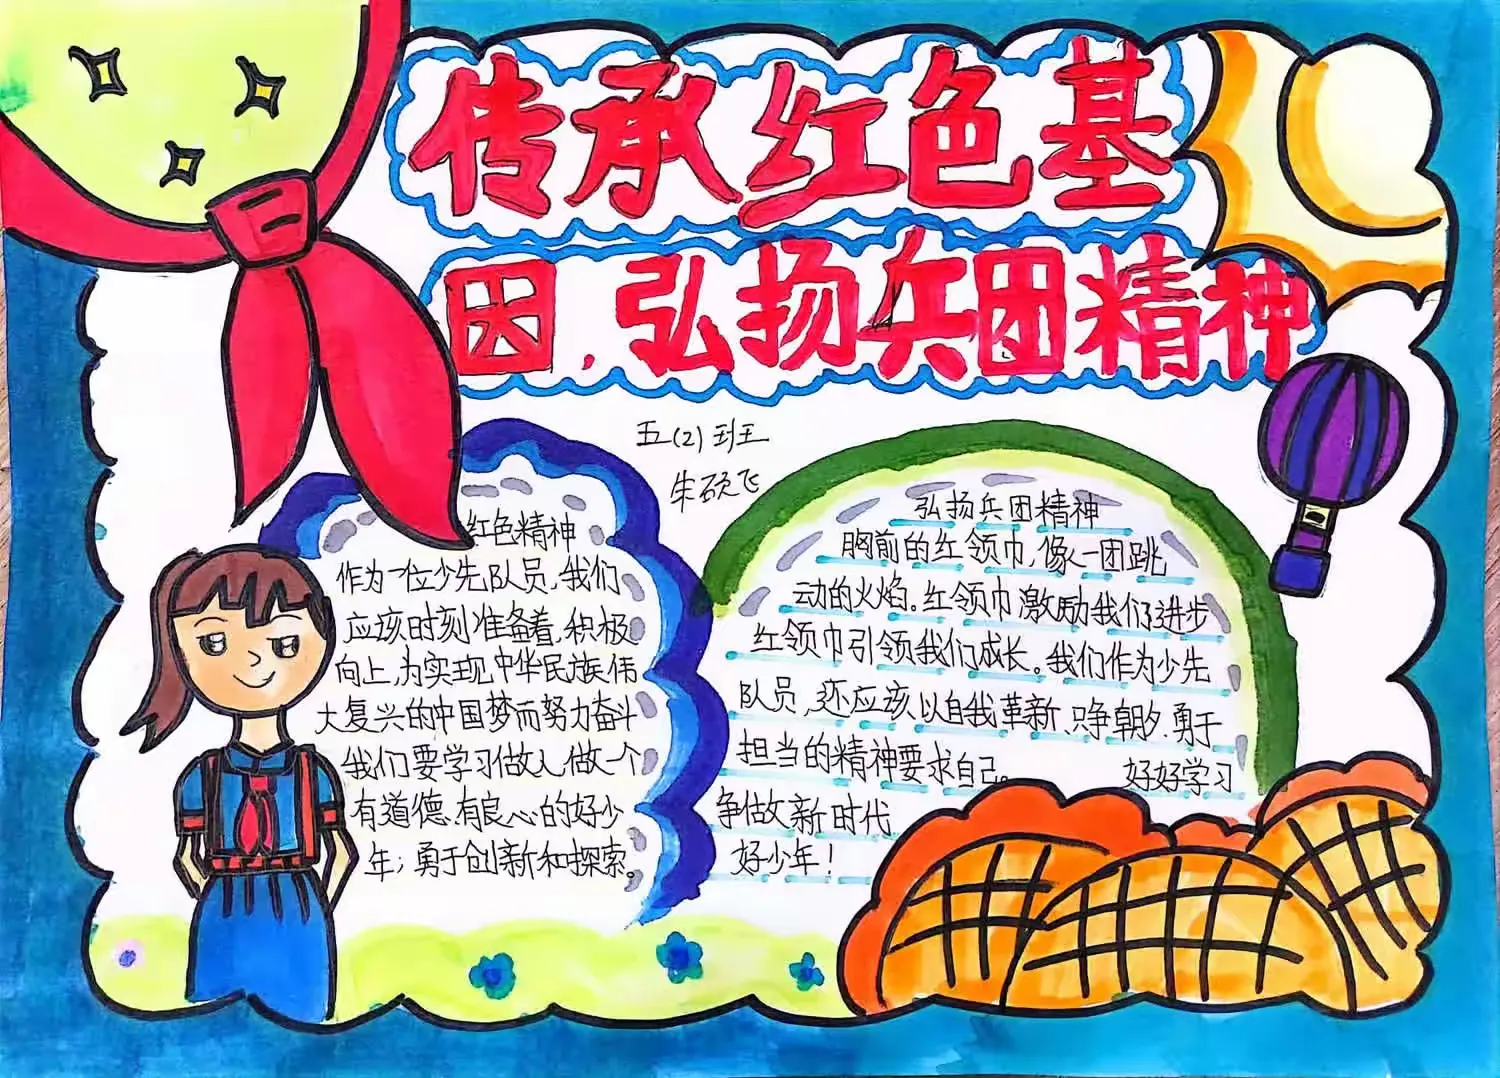 传承红色基
因，弘扬兵团精神
五(2)班
朱硕飞
红色精神
作为一位少先队员，我们
应该时刻准备着，积极
向上，为实现中华民族伟
大复兴的中国梦而努力奋斗
我们要学习做人做一个
有道德、有良心的好少
年；勇于创新和探索。
弘扬兵团精神
胸前的红领巾，像一团跳
动的火焰。红领巾激励我们进步
红领巾引领我们成长。我们作为少先
队员，还应该以自我革新、只争朝夕、勇于
担当的精神要求自己。 好好学习
争做新时代
好少年！